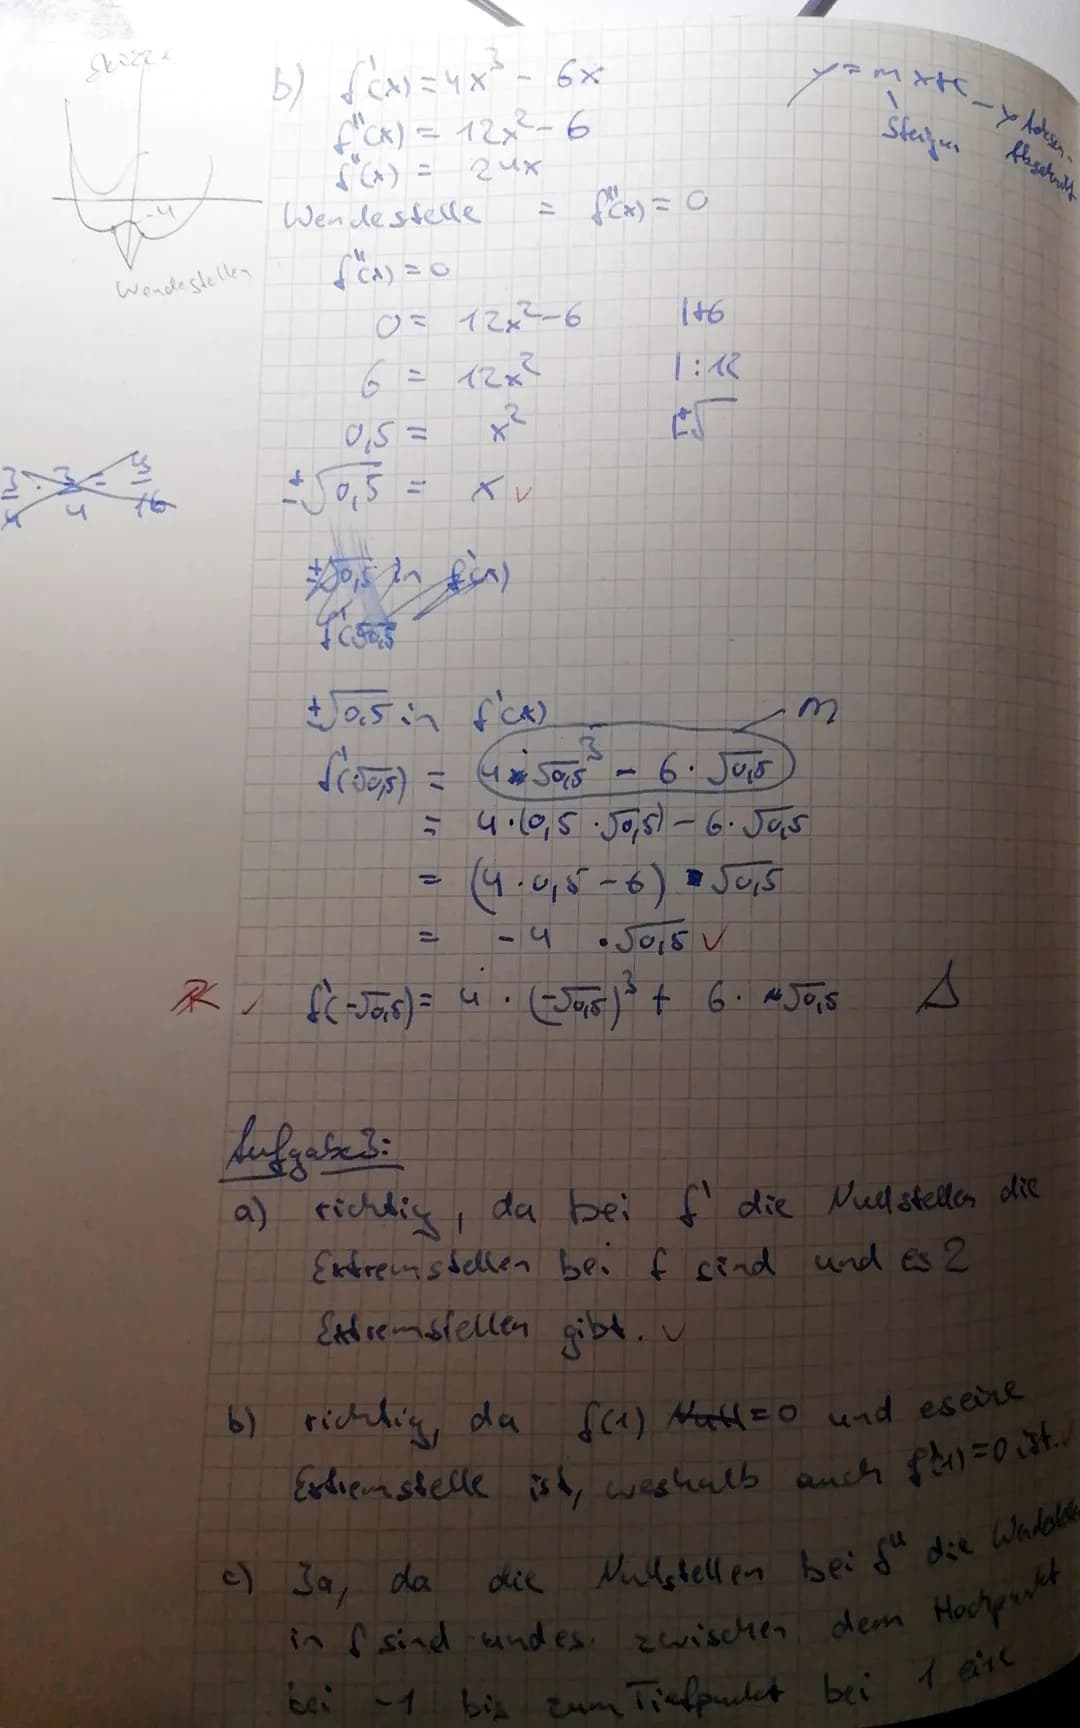 Skizze
-4
Wendestellen
b) f'(x) = 4x³ - 6x
f''(x) = 12x² - 6
f'''(x) = 24x
Wendestelle = f''(x) = 0
f''(x) = 0
0 = 12x² - 6 |+6
6 = 12x² |:12
0,5 = x² |±√
±√0,5 = x ✓
y = mx+c
Achsen-
Abschnitt
3/4 · 3/4 = 9/16
±√0,5 in f'(x)
±√0,5 in f'(x)
m
f'(√0,5) = 4·√0,5³ - 6·√0,5
= 4·(0,5·√0,5) - 6·√0,5
= (4·0,5 - 6) · √0,5
= -4 · √0,5 ✓
✓ f'(-√0,5) = 4·(-√0,5)³ + 6·√0,5
Aufgabe 3:
a) richtig, da bei f' die Nullstellen die
Extremstellen bei f sind und es 2
Extremstellen gibt. ✓
b) richtig, da f(1) = 0 und es eine
Extremstelle ist, weshalb auch f'(1) = 0 ist. ✓
c) Ja, da die Nullstellen bei f'' die
in f sind und es zwischen dem Hochpunkt
bei -1 bis zum Tiefpunkt bei 1 eine